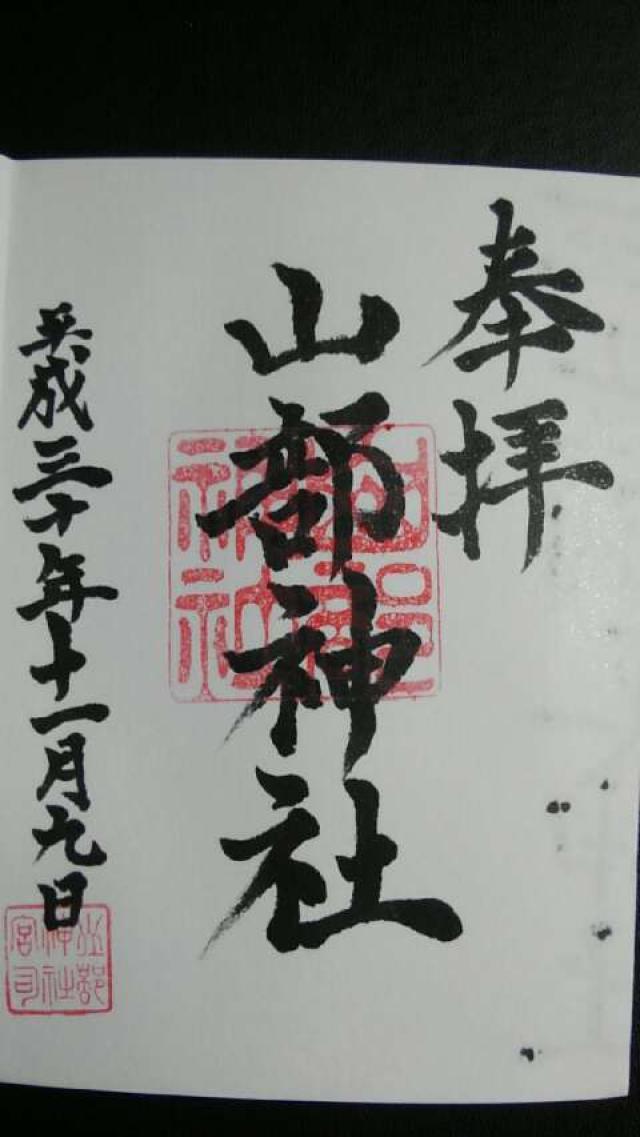 奉拝
山部神社
山部神社
平成三十年十一月九日
山部神社宮司